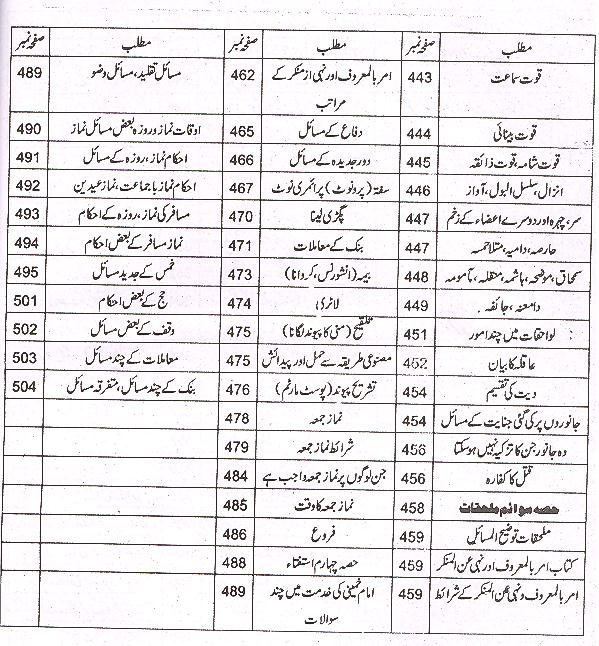 مطلب صفحہ نمبر مطلب صفحہ نمبر مطلب صفحہ نمبر
قوت سماعت 443 امر بالمعروف اور نہی از منکر کے 462 مسائل تقلید، مسائل وضو 489
مراتب
قوت بینائی 444 دفاع کے مسائل 465 اوقات نماز و روزہ بعض مسائل نماز 490
قوت شامہ، قوت ذائقہ 445 دور جدیدہ کے مسائل 466 احکام نماز، روزہ کے مسائل 491
انزال، سلسل البول، آواز 446 سفتۃ (پرونوٹ) پرائمری نوٹ 467 احکام نماز با جماعت، نماز عیدین 492
سر، چہرہ اور دوسرے اعضاء کے زخم 447 پگڑی لینا 470 مسافر کی نماز، روزہ کے احکام 493
حارصہ، دامیہ، متلاحمہ 447 بنک کے معاملات 471 نماز مسافر کے بعض احکام 494
سمحاق، موضحہ، ہاشمہ، منقلہ، مآمومہ 448 بیمہ (انشورنس، کروانا) 473 خمس کے جدید مسائل 495
دامغہ، جائفہ 449 لاٹری 474 حج کے بعض احکام 501
لواحقات میں چند امور 451 تلقیح (منی کا پیوند لگانا) 475 وقف کے بعض مسائل 502
عاقلہ کا بیان 452 مصنوعی طریقہ سے حمل اور پیدائش 475 معاملات کے چند مسائل 503
دیت کی تقسیم 454 تشریح پیوند (پوسٹ مارٹم) 476 بنک کے چند مسائل، متفرقہ مسائل 504
جانوروں پر کی گئی جنایت کے مسائل 454 نماز جمعہ 478
وہ جانور جن کا تزکیہ نہیں ہو سکتا 456 شرائط نماز جمعہ 479
قتل کا کفارہ 456 جن لوگوں پر نماز جمعہ واجب ہے 484
حصہ سوائم ملحقات 458 نماز جمعہ کا وقت 485
ملحقات توضیح المسائل 459 فروع 486
کتاب امر بالمعروف اور نہی عن المنکر 459 حصہ چہارم استفتاء 488
امر بالمعروف و نہی عن المنکر کے شرائط 459 امام خمینی کی خدمت میں چند 489
سوالات